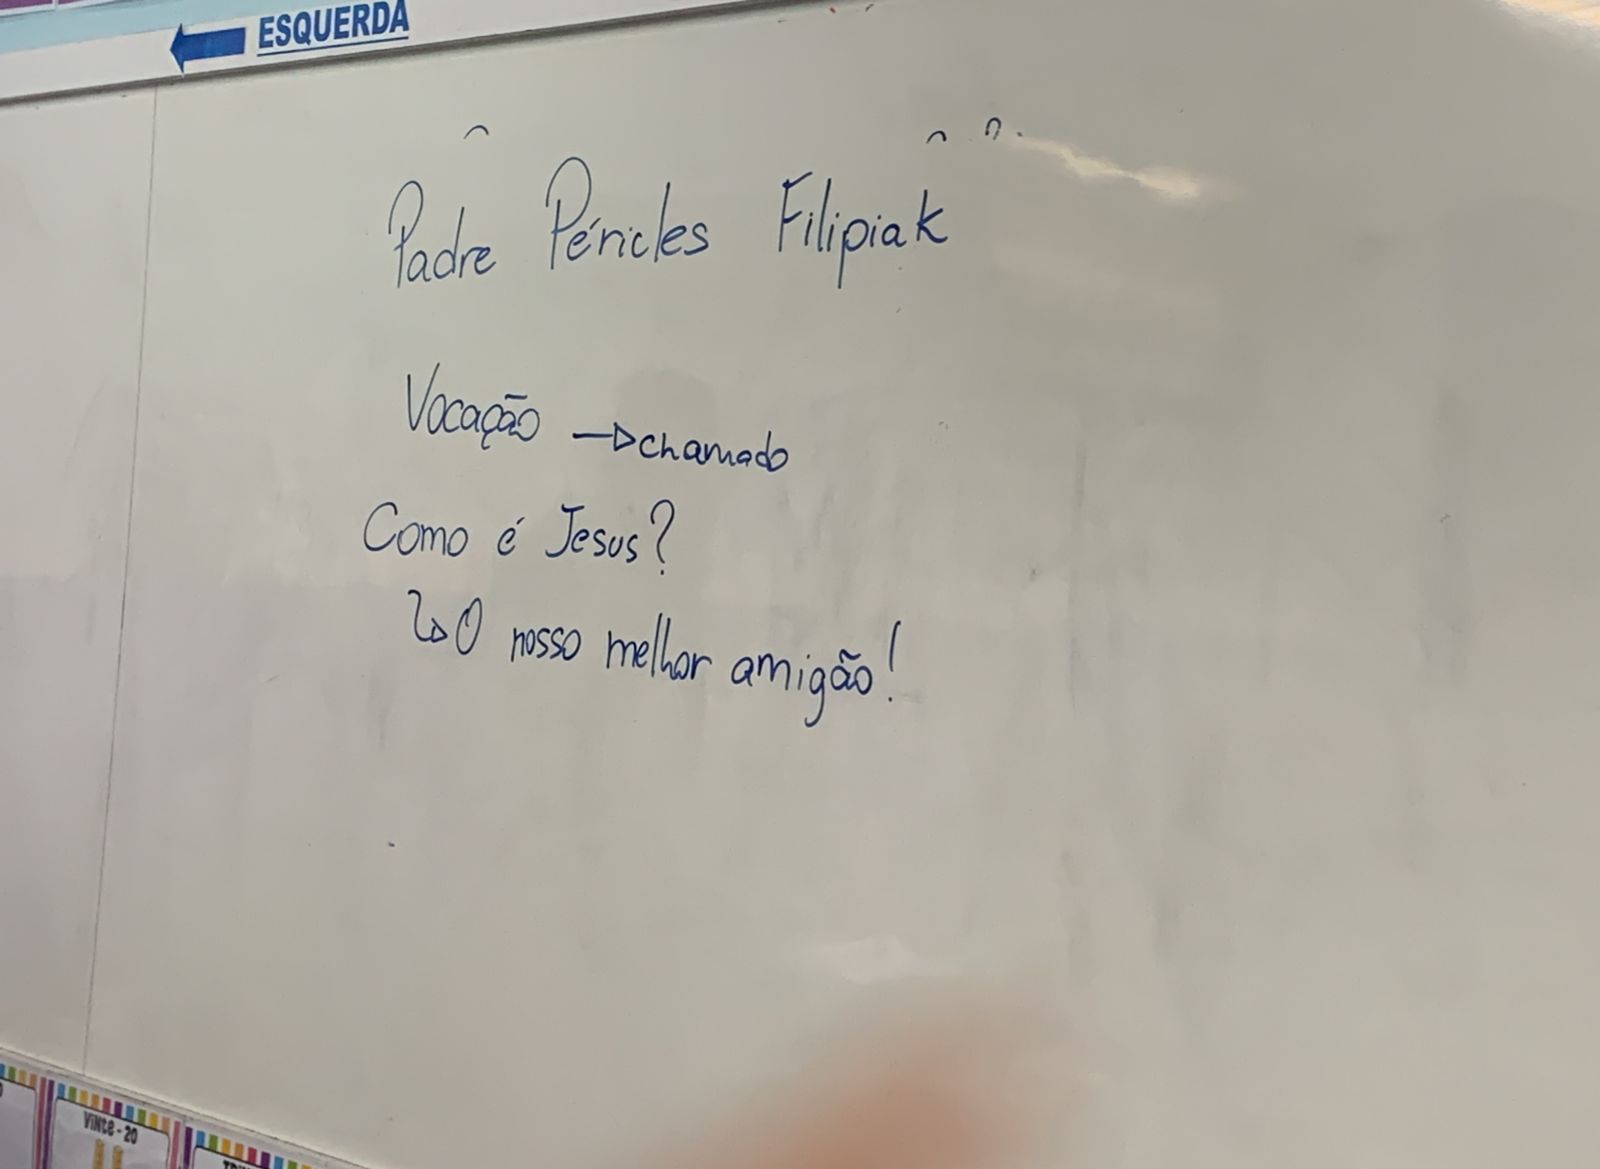 ESQUERDA
Padre Péricles Filipiak
Vocação → chamado
Como é Jesus?
↳ O nosso melhor amigão!
Vinte - 20